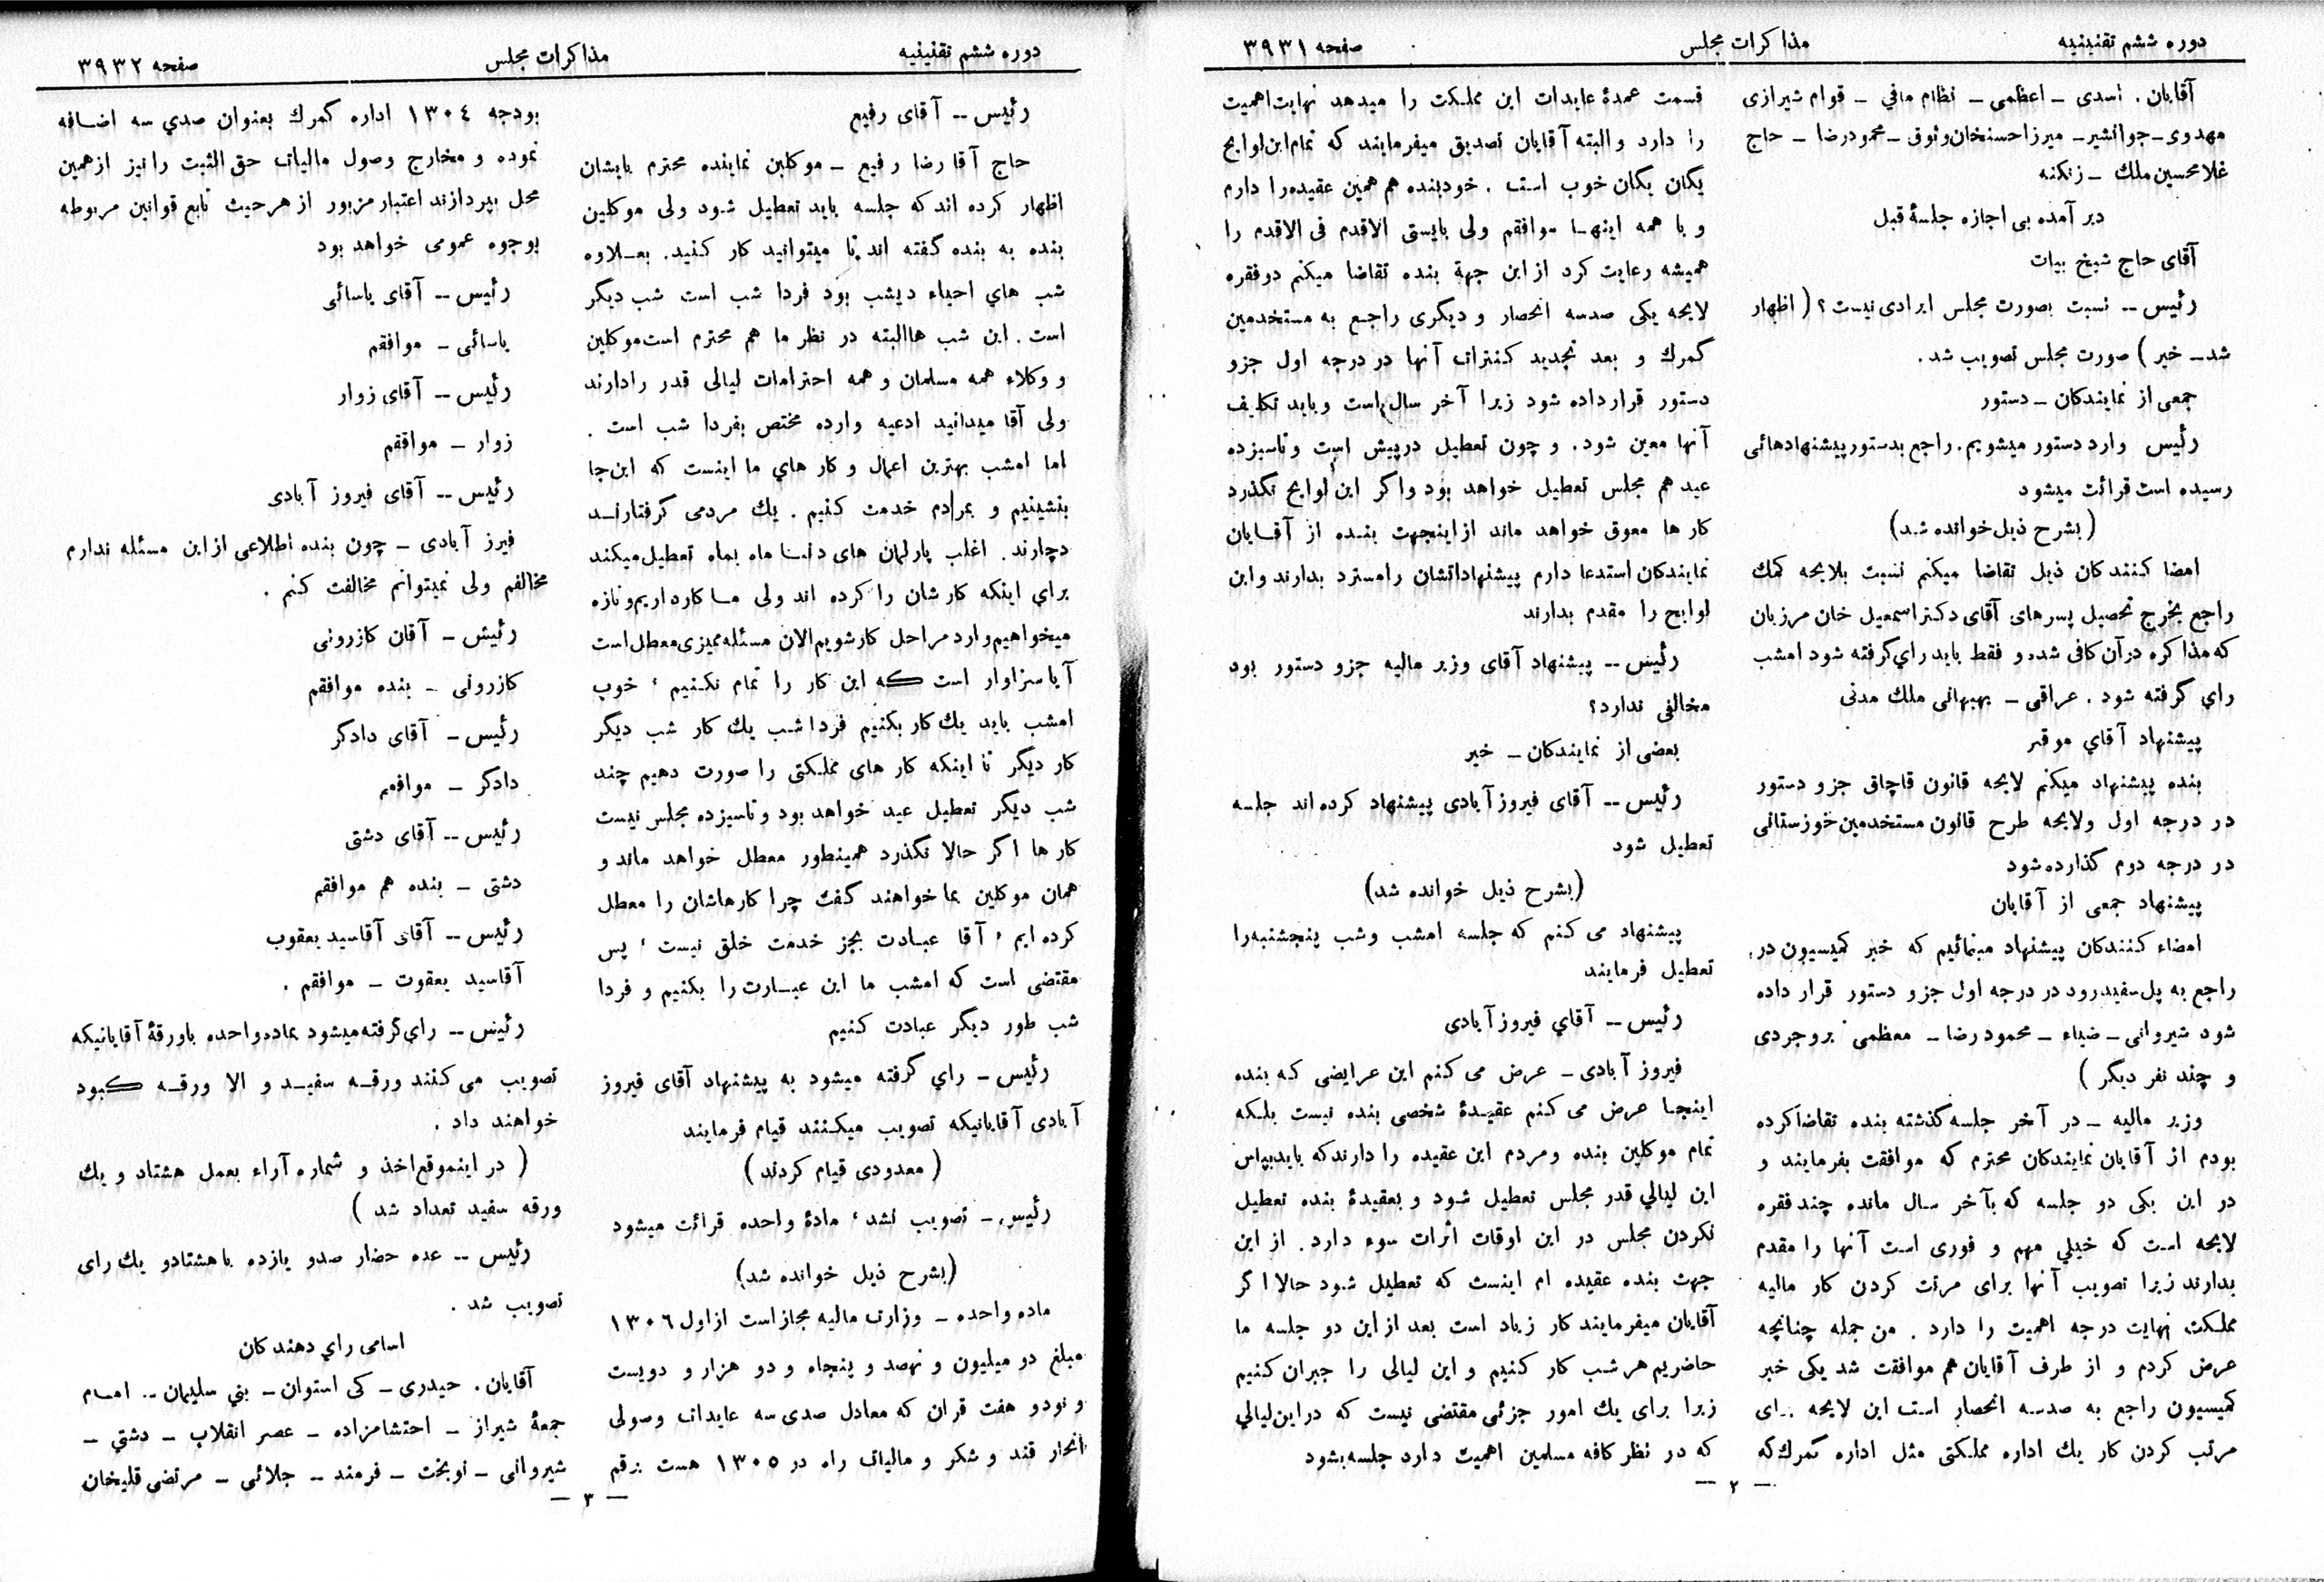 دوره ششم تقنینیه
مذاکرات مجلس
صفحه ۳۹۳۱
آقایان . اسدی ـ اعظمی ـ نظام مافی ـ قوام شیرازی
مهدوی ـ جوانشیر ـ میرزا حسنخان وثوق ـ محمود رضا ـ حاج
غلامحسین ملك ـ زنکنه
دیر آمده بی اجازه جلسهٔ قبل
آقای حاج شیخ بیات
رئیس -- نسبت بصورت مجلس ایرادی نیست ؟ ( اظهار
شد ـ خیر ) صورت مجلس تصویب شد .
جمعی از نمایندکان ـ دستور
رئیس وارد دستور میشویم . راجع بدستور پیشنهادهائی
رسیده است قرائت میشود
(بشرح ذیل خوانده شد)
امضا کنندکان ذیل تقاضا میکنم نسبت بلایحه کمك
راجع بخرج تحصیل پسرهای آقای دکتر اسمعیل خان مرزبان
که مذاکره در آن کافی شده و فقط باید رای گرفته شود امشب
رای گرفته شود . عراقی ـ بهبهانی ملك مدنی
پیشنهاد آقاي موقر
بنده پیشنهاد میکنم لایحه قانون قاچاق جزو دستور
در درجه اول ولایحه طرح قانون مستخدمین خوزستانی
در درجه دوم کذارده شود
پیشنهاد جمعی از آقایان
امضاء کنندکان پیشنهاد مینمائیم که خبر کمیسیون در
راجع به پل سفیدرود در درجه اول جزو دستور قرار داده
شود شیروانی ـ ضیاء ـ محمود رضا ـ معظمی بروجردی
و چند نفر دیگر )
وزیر مالیه ـ در آخر جلسه گذشته بنده تقاضا کرده
بودم از آقایان نمایندکان محترم که موافقت بفرمایند و
در این یکی دو جلسه که بآخر سال مانده چند فقره
لایحه است که خیلي مهم و فوری است آنها را مقدم
بدارند زیرا تصویب آنها برای مرتب کردن کار مالیه
مملکت نهایت درجه اهمیت را دارد . من جمله چنانچه
عرض کردم و از طرف آقایان هم موافقت شد یکی خبر
کمیسیون راجع به صدسه انحصار است این لایحه برای
مرتب کردن کار یك اداره مملکتی مثل اداره گمرك که
قسمت عمدهٔ عایدات این مملکت را میدهد نهایت اهمیت
را دارد والبته آقایان تصدیق میفرمایند که تمام این لوایح
یگان یگان خوب است . خود بنده هم همین عقیده را دارم
و با همه اینها موافقم ولی بایستی الاقدم فی الاقدم را
همیشه رعایت کرد از این جهة بنده تقاضا میکنم دو فقره
لایحه یکی صدسه انحصار و دیگری راجع به مستخدمین
گمرك و بعد تجدید کنترات آنها در درجه اول جزو
دستور قرار داده شود زیرا آخر سال است و باید تکلیف
آنها معین شود . و چون تعطیل درپیش است و تاسیزده
عید هم مجلس تعطیل خواهد بود و اگر این لوایح نگذرد
کار ها معوق خواهد ماند از اینجهت بنده از آقایان
نمایندکان استدعا دارم پیشنهاداتشان را مسترد بدارند و این
لوایح را مقدم بدارند
رئیس -- پیشنهاد آقای وزیر مالیه جزو دستور بود
مخالفی ندارد؟
بعضی از نمایندکان ـ خیر
رئیس -- آقای فیروز آبادی پیشنهاد کرده اند جلسه
تعطیل شود
(بشرح ذیل خوانده شد)
پیشنهاد می کنم که جلسه امشب و شب پنجشنبه را
تعطیل فرمایند
رئیس -- آقاي فیروز آبادی
فیروز آبادی ـ عرض می کنم این عرایضی که بنده
اینجا عرض می کنم عقیدهٔ شخصی بنده نیست بلکه
تمام موکلین بنده و مردم این عقیده را دارند که باید بپاس
این لیالي قدر مجلس تعطیل شود و بعقیدهٔ بنده تعطیل
نکردن مجلس در این اوقات اثرات سوء دارد . از این
جهت بنده عقیده ام اینست که تعطیل شود حالا اگر
آقایان میفرمایند کار زیاد است بعد از این دو جلسه ما
حاضریم هر شب کار کنیم و این لیالی را جبران کنیم
زیرا برای یك امور جزئی مقتضی نیست که در این لیالي
که در نظر کافه مسلمین اهمیت دارد جلسه بشود
— ۲ —
دوره ششم تقنینیه
مذاکرات مجلس
صفحه ۳۹۳۲
رئیس -- آقای رفیع
حاج آقا رضا رفیع ـ موکلین نماینده محترم بایشان
اظهار کرده اند که جلسه باید تعطیل شود ولی موکلین
بنده به بنده گفته اند تا میتوانید کار کنید . بعلاوه
شب هاي احیاء دیشب بود فردا شب است شب دیگر
است . این شب ها البته در نظر ما هم محترم است موکلین
و وکلاء همه مسلمان و همه احترامات لیالی قدر را دارند
ولی آقا میدانید ادعیه وارده مختص بفردا شب است .
اما امشب بهترین اعمال و کار هاي ما اینست که این جا
بنشینیم و بمردم خدمت کنیم . یك مردمی گرفتارند
دچارند . اغلب پارلمان های دنیا ماه بماه تعطیل میکند
براي اینکه کارشان را کرده اند ولی ما کار داریم و تازه
میخواهیم وارد مراحل کار شویم الان مسئله ممیزی معطل است
آیا سزاوار است که این کار را تمام نکنیم ؛ خوب
امشب باید یك کار بکنیم فردا شب یك کار شب دیگر
کار دیگر تا اینکه کار های مملکتی را صورت دهیم چند
شب دیگر تعطیل عید خواهد بود و تاسیزده مجلس نیست
کار ها اگر حالا نگذرد همینطور معطل خواهد ماند و
همان موکلین بما خواهند گفت چرا کارهاشان را معطل
کرده ایم ؛ آقا عبادت بجز خدمت خلق نیست ؛ پس
مقتضی است که امشب ما این عبارت را بکنیم و فردا
شب طور دیگر عبادت کنیم
رئیس ـ راي گرفته میشود به پیشنهاد آقای فیروز
آبادی آقایانیکه تصویب میکنند قیام فرمایند
( معدودی قیام کردند )
رئیس ـ تصویب نشد ؛ مادهٔ واحده قرائت میشود
(بشرح ذیل خوانده شد)
ماده واحده ـ وزارت مالیه مجاز است از اول ۱۳۰٦
مبلغ دو میلیون و نهصد و پنجاه و دو هزار و دویست
و نود و هفت قران که معادل صدی سه عایدات وصولی
انحار قند و شکر و مالیات راه در ۱۳۰۵ هست بر قم
بودجه ۱۳۰٤ اداره گمرك بعنوان صدي سه اضافه
نموده و مخارج وصول مالیات حق الثبت را نیز از همین
محل بپردازند اعتبار مزبور از هر حیث تابع قوانین مربوطه
بوجوه عمومی خواهد بود
رئیس -- آقای یاسائی
یاسائی ـ موافقم
رئیس -- آقای زوار
زوار ـ موافقم
رئیس -- آقای فیروز آبادی
فیرز آبادی ـ چون بنده اطلاعی از این مسئله ندارم
مخالفم ولی نمیتوانم مخالفت کنم .
رئیش ـ آقان کازرونی
کازرونی ـ بنده موافقم
رئیس ـ آقای دادکر
دادکر ـ موافقم
رئیس -- آقای دشتی
دشتی ـ بنده هم موافقم
رئیس -- آقای آقاسید یعقوب
آقاسید یعقوت ـ موافقم .
رئیس -- رای گرفته میشود بماده واحده با ورقهٔ آقایانیکه
تصویب می کنند ورقه سفید و الا ورقه کبود
خواهند داد .
( در اینموقع اخذ و شماره آراء بعمل هشتاد و یك
ورقه سفید تعداد شد )
رئیس -- عده حضار صد و یازده با هشتاد و یك رای
تصویب شد .
اسامی راي دهندکان
آقایان . حیدری ـ کی استوان ـ بني سلیمان -- امام
جمعهٔ شیراز ـ احتشامزاده ـ عصر انقلاب ـ دشتي ـ
شیروانی ـ نوبخت ـ فرمند -- جلائی ـ مرتضی قلیخان
— ۳ —